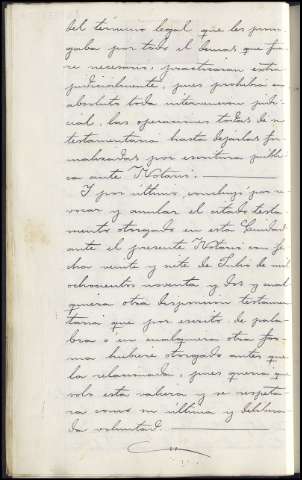 del término legal que les prorro-
gaba por todo el demas que fue-
re necesario, practicaran extra-
judicialmente, pues prohibia en
absoluto toda intervencion judi-
cial, las operaciones todas de su
testamentaria hasta dejarlas for-
malizadas por escritura públi-
ca ante Notario.
Y por último, concluyó por re-
vocar y anular el citado testa-
mento otorgado en esta Ciudad
ante el presente Notario con fe-
cha veinte y siete de Julio de mil
ochocientos noventa y dos y cual-
quiera otra disposicion testamen-
taria que por escrito, de pala-
bra o en cualquiera otra for-
ma hubiere otorgado antes que
la relacionada, pues queria que
solo esta valiera y se respeta-
ra como su ultima y delibera-
da voluntad.